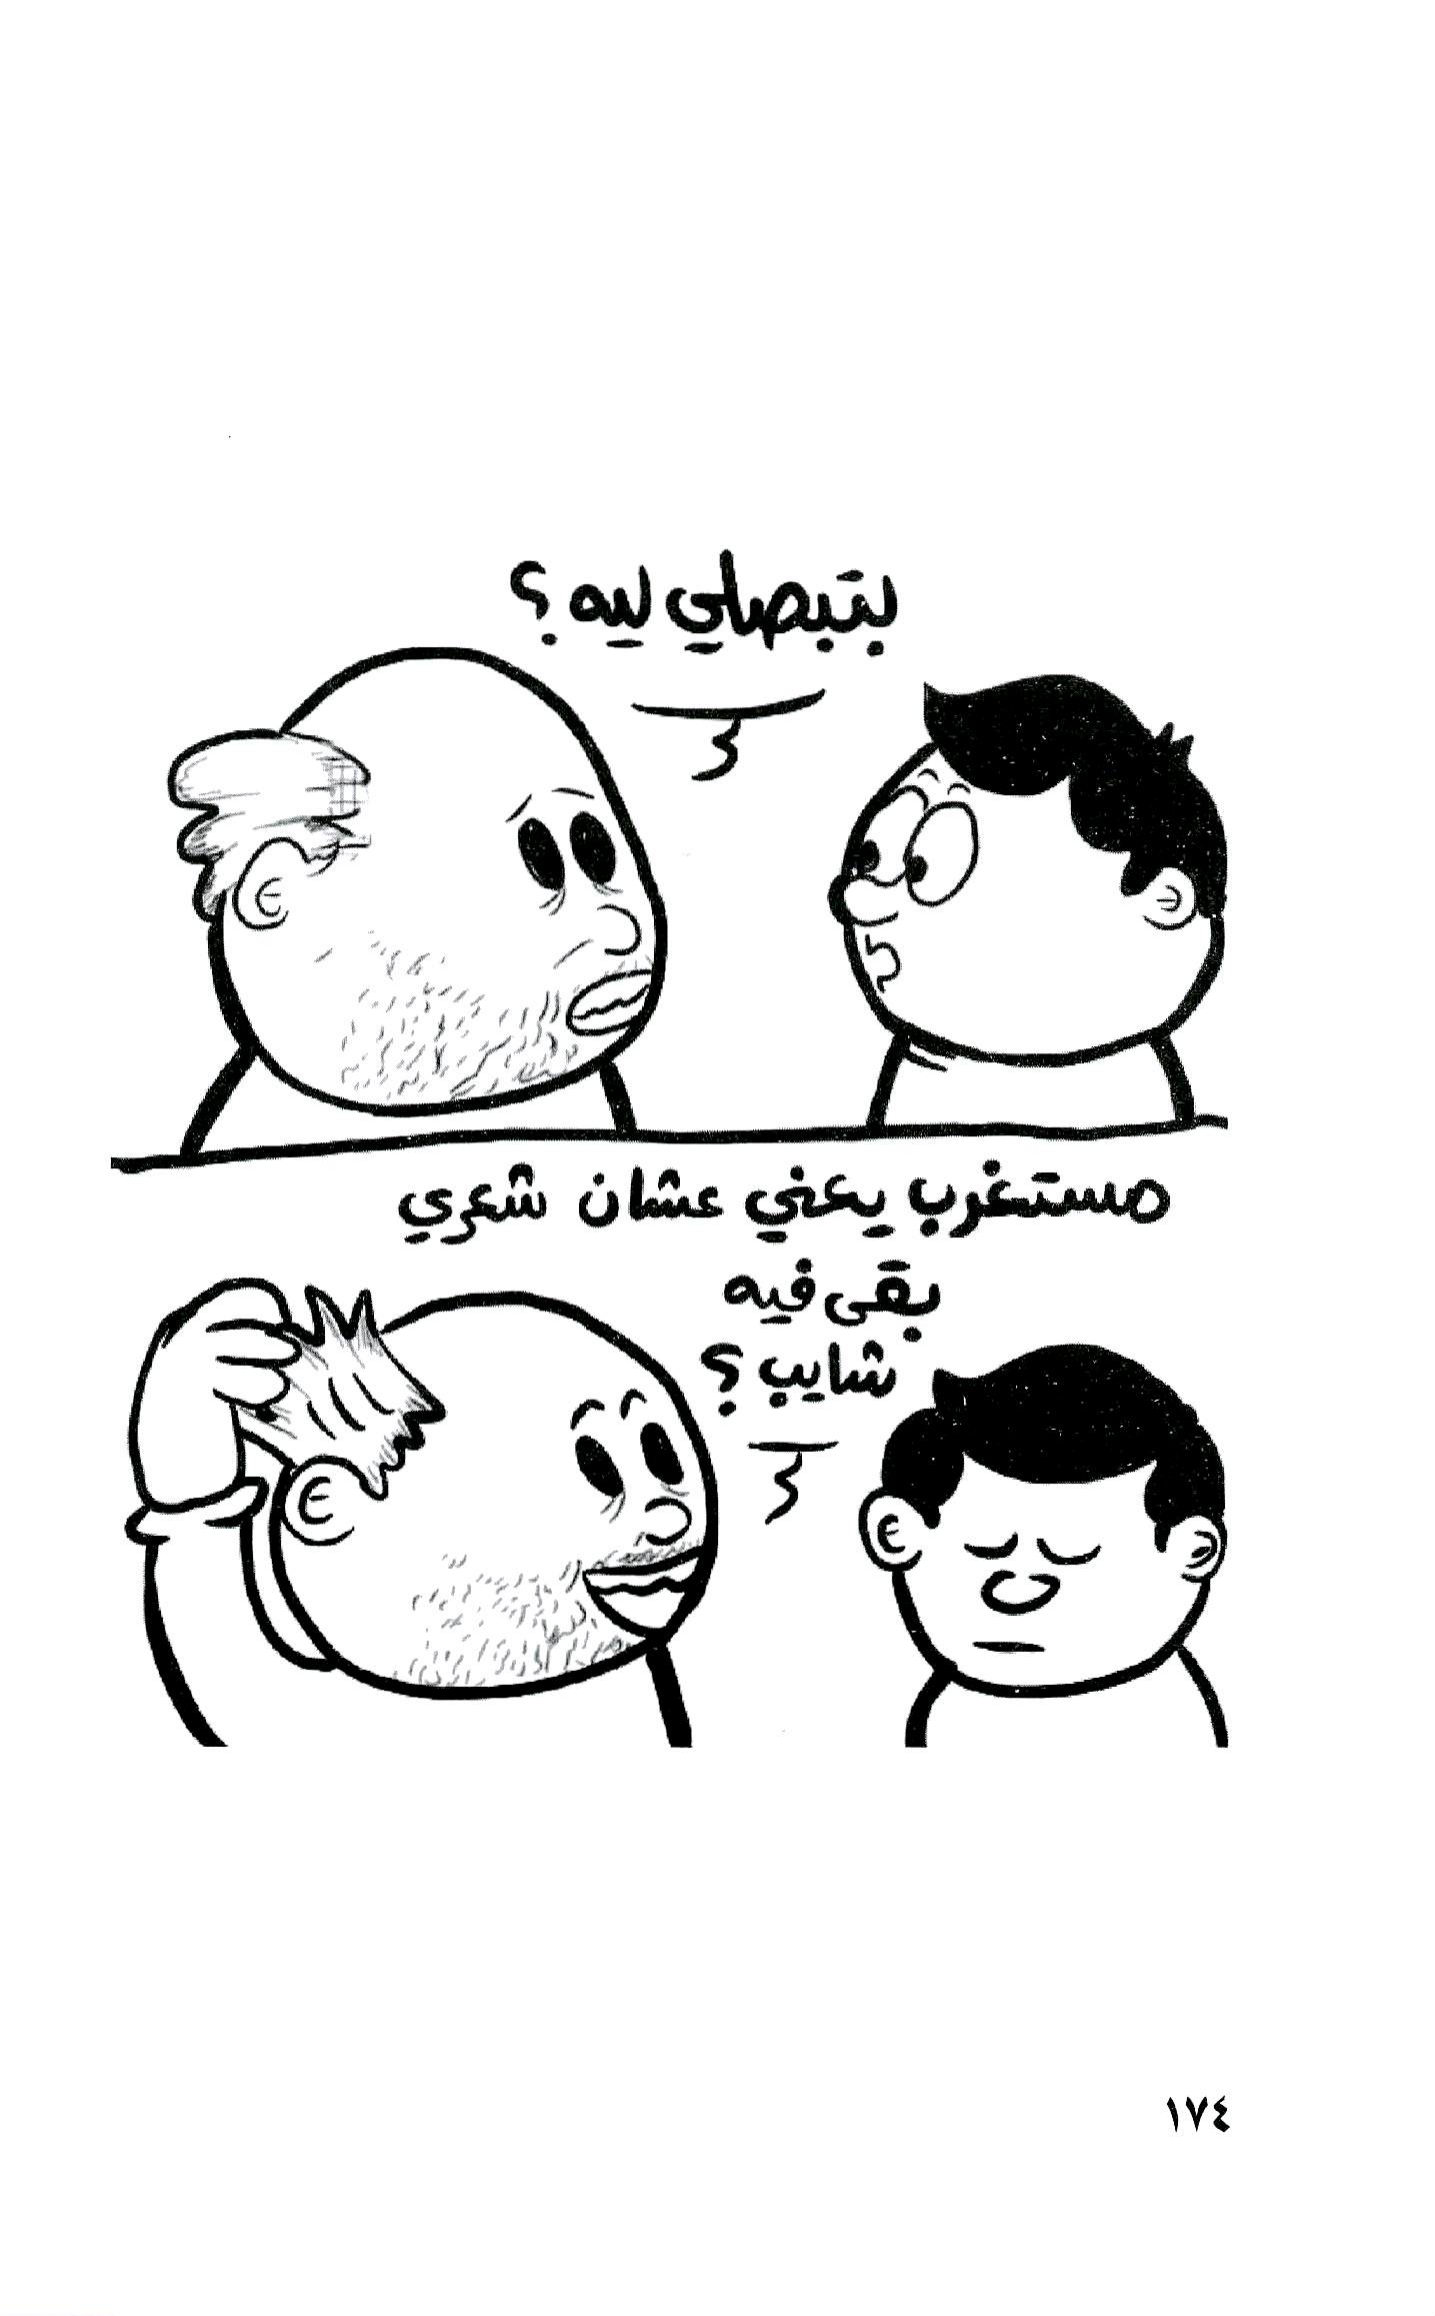 بتبصلي ليه؟
مستغرب يعني عشان شعري
بقى فيه
شايب؟
١٧٤